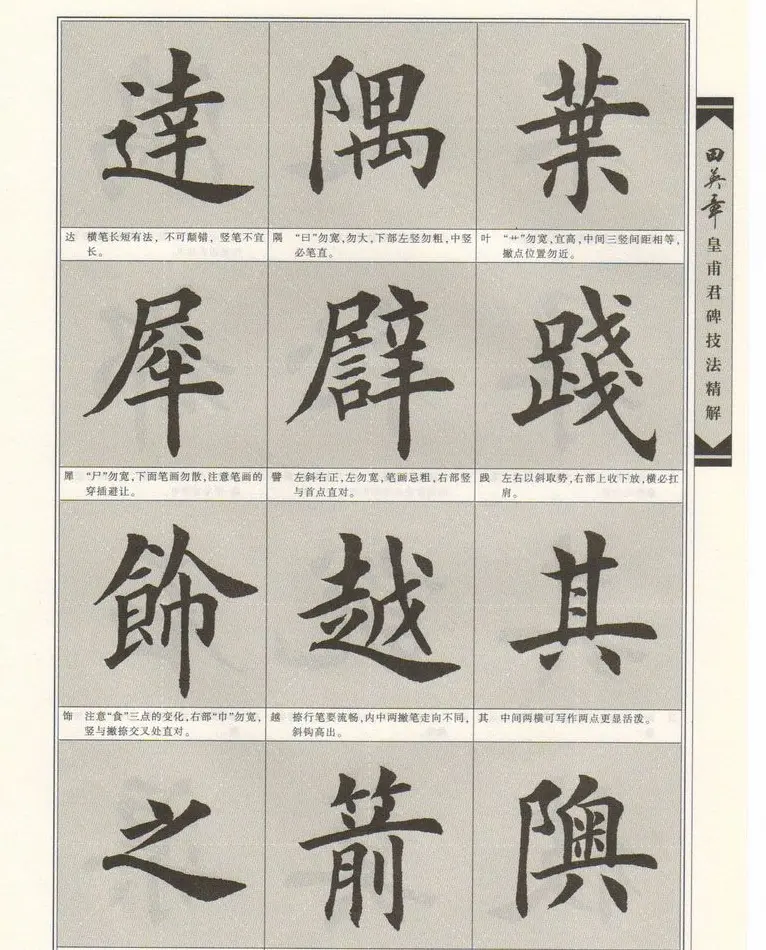 達
隅
葉
达 横笔长短有法，不可颠错，竖笔不宜
长。
隅 “曰”勿宽，勿大，下部左竖勿粗，中竖
必笔直。
叶 “艹”勿宽，宜高，中间三竖间距相等，
撇点位置勿近。
犀
譬
踐
犀 “尸”勿宽，下面笔画勿散，注意笔画的
穿插避让。
譬 左斜右正，左勿宽，笔画忌粗，右部竖
与首点直对。
践 左右以斜取势，右部上收下放，横必扛
肩。
飾
越
其
饰 注意“食”三点的变化，右部“巾”勿宽，
竖与撇捺交叉处直对。
越 捺行笔要流畅，内中两撇笔走向不同，
斜钩高出。
其 中间两横可写作两点更显活泼。
之
箭
隩
田英章
皇甫君碑技法精解